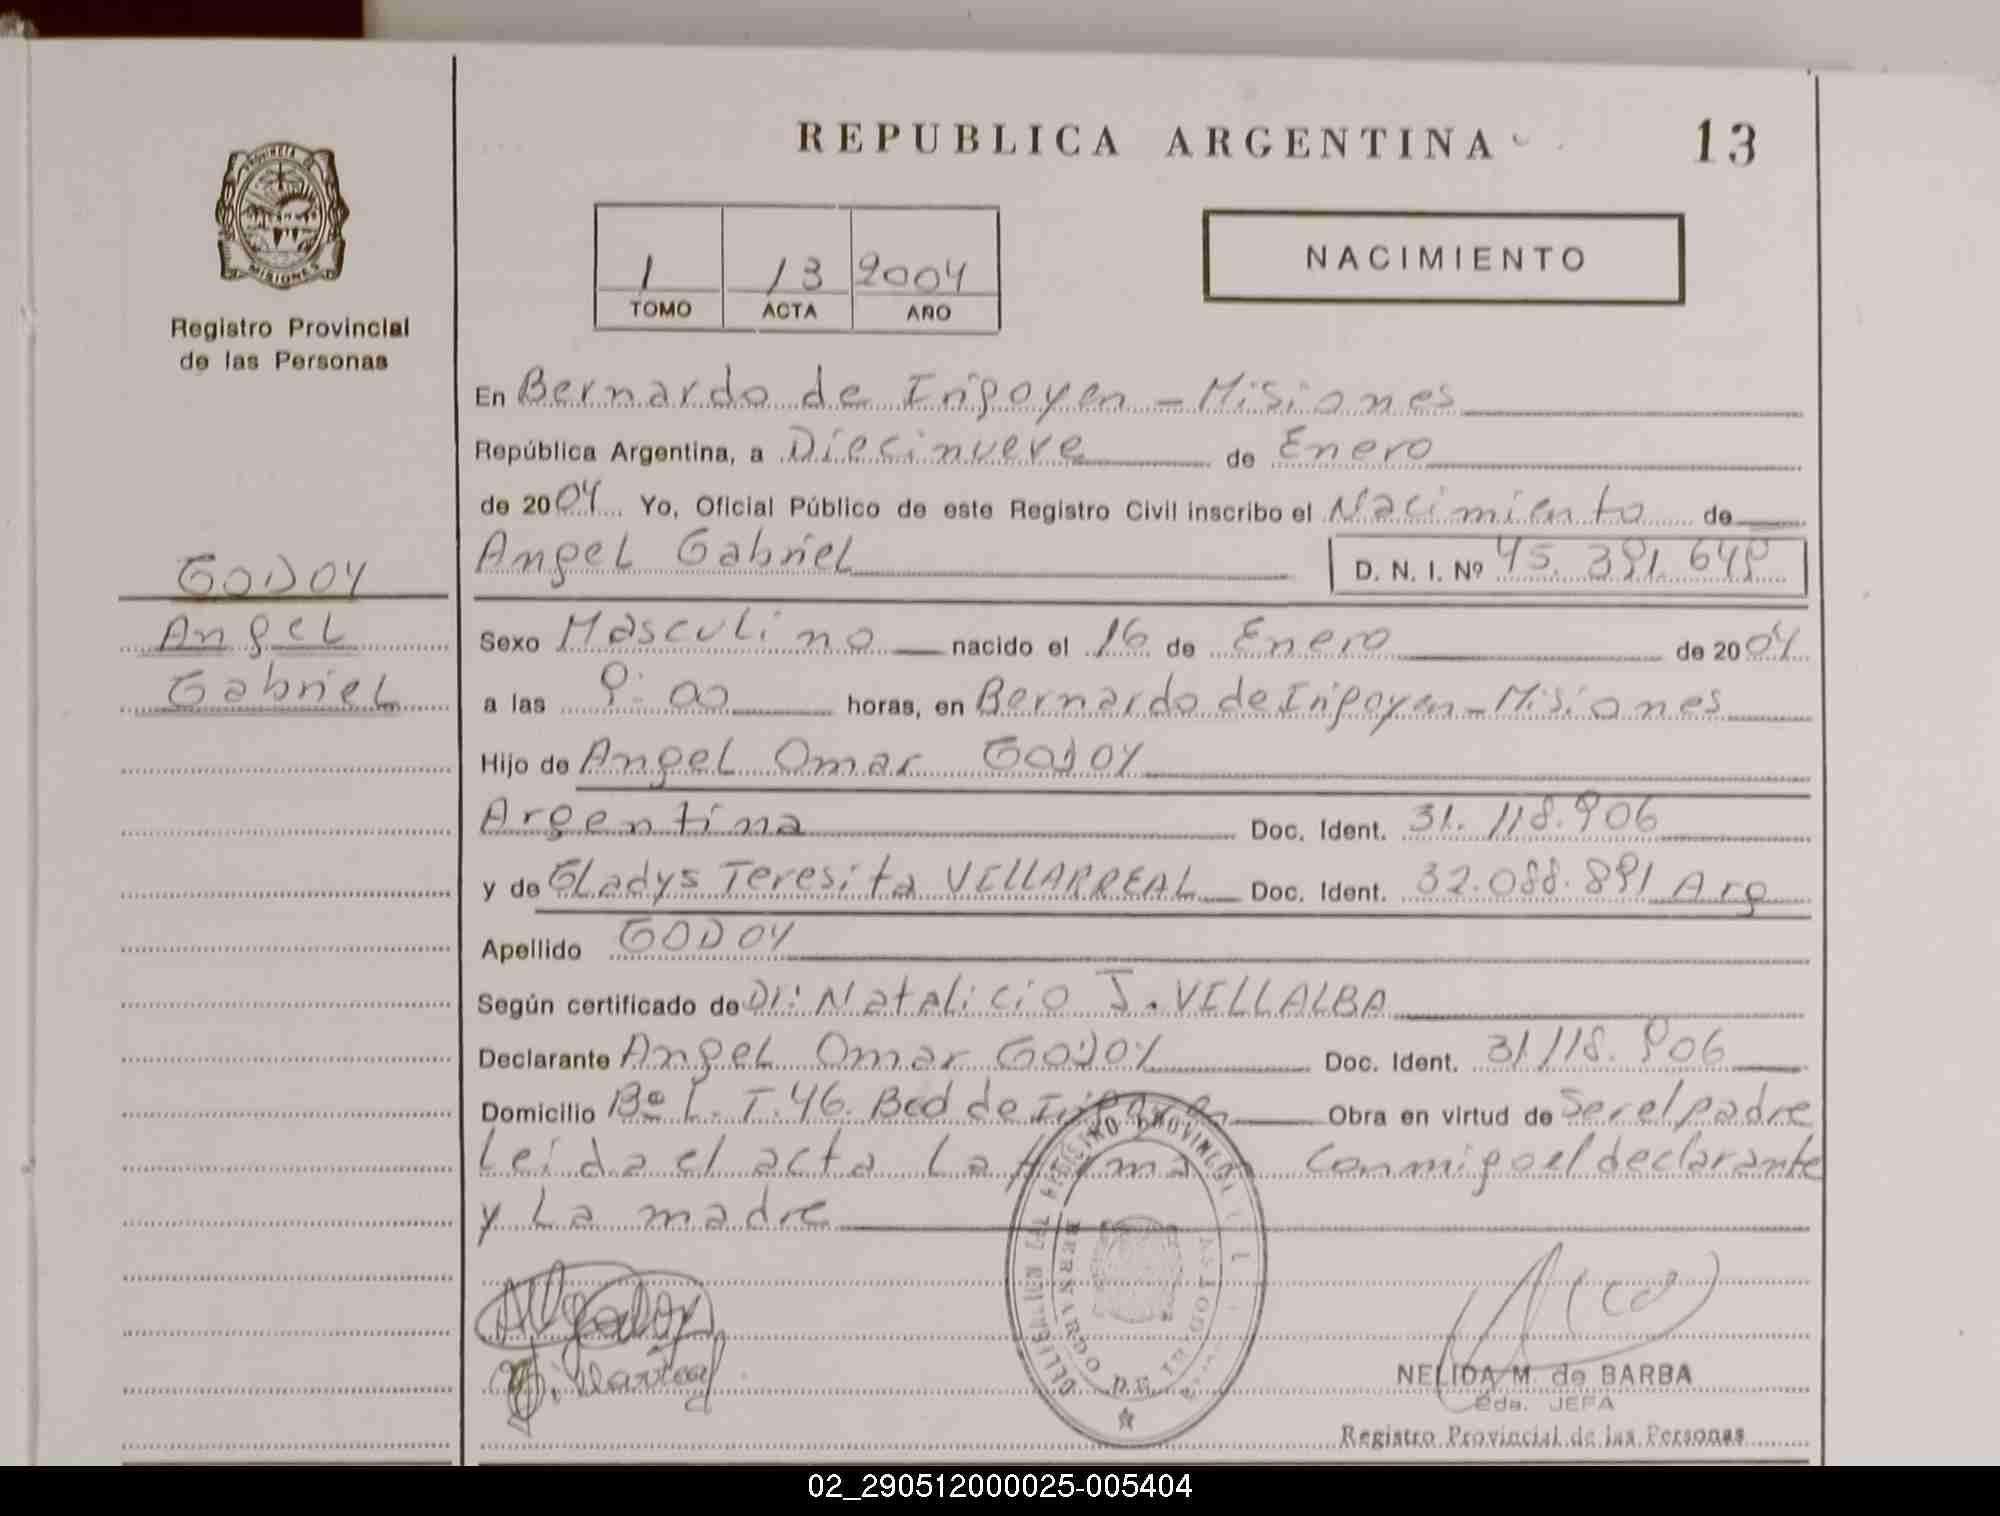 REPUBLICA ARGENTINA
13
PROVINCIA DE
MISIONES
Registro Provincial
de las Personas
1 13 2004
TOMO ACTA AÑO
NACIMIENTO
En Bernardo de Irigoyen - Misiones
República Argentina, a Diecinueve de Enero
de 2004 Yo, Oficial Público de este Registro Civil inscribo el Nacimiento de
Angel Gabriel D. N. I. Nº 45.391.649
GODOY
Angel
Gabriel
Sexo Masculino nacido el 16 de Enero de 2004
a las 9:00 horas, en Bernardo de Irigoyen - Misiones
Hijo de Angel Omar GODOY
Argentina Doc. Ident. 31.118.906
y de Gladys Teresita VILLARREAL Doc. Ident. 32.088.891 Arg
Apellido GODOY
Según certificado de Dr: Natalicio J. VILLALBA
Declarante Angel Omar GODOY Doc. Ident. 31.118.906
Domicilio Bº I. T. 46. Bdo de Irigoyen Obra en virtud de Ser el padre
Leida el acta La firma conmigo el declarante
y La madre
Villarreal
NELIDA M. de BARBA
Eda. JEFA
Registro Provincial de las Personas
02_290512000025-005404